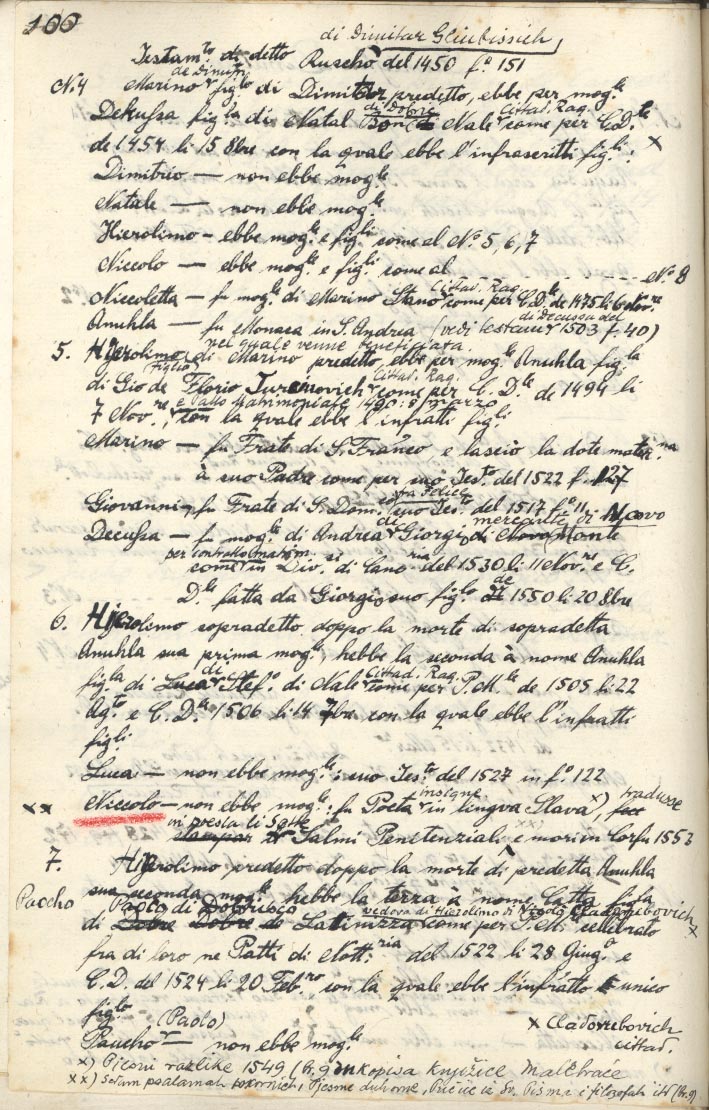 100
di Dimitar Gliubissich,
Testam.to di detto Ruscho del 1450 f.o 151
de Dimitri
N.4 Marino figlo di Dimitar predetto, ebbe per mog.le
di Dobrie Cittad. Rag.
Dekussa fig.la di Natal Bon di Nale come per C.D.te
de 1454 li 15 8bre con la qvale ebbe l'infrascritti fig.li: x
Dimitrio — non ebbe mog.le
Natale — non ebbe mog.le
Hierolimo - ebbe mog.le e fig.li come al N.o 5, 6, 7
Niccolo — ebbe mog.le e fig.li come al - - - - - - - N.o 8
Cittad. Rag.
Niccoletta — fu mog.le di Marino Stano come per C.D.te de 1475 li 6 Nov.re
di Decussa del
Anuhla — fu Monaca in S. Andrea (vedi testam 1503 f. 40)
nel quale venne beneficiata.
5. Hijerolimo di Marino predetto ebbe per mog.le Anuhla fig.la
(Figlio) Cittad. Rag.
di Gio de Florio Jurinovich come per C.D.le de 1494 li
e Patto Matrimoniale 1490: 8 marzo
7 Nov.re, con la qvale ebbe l'infratti fig.li
Marino — fu Frate di S. Franco e lascio la dote mater.na
à suo Padre come per suo Tes.to del 1522 f. 127
fra Felice
Giovanni - fu Frate di S. Dom. suo Tes.to del 1517 f.o 11
de mercante di Novo
Decussa — fu mog.le di Andrea Giorgi di Novo Monte
per contratto matrim.
come in Div. di Canc.ria del 1530 li 11 Nov.re e C.
de
D.le fatta da Giorgi suo fig.lo 1550 li 20 8bre
6. Hijerolimo sopradetto doppo la morte di sopradetta
Anuhla sua prima mog.le, hebbe la seconda à nome Anuhla
di Cittad. Rag.
fig.la di Luca Stef.o di Nale come per P.M.le de 1505 li 22
Ag.to e C.D.le 1506 li 14 7bre con la qvale ebbe l'infratti
fig.li
Luca — non ebbe mog.le: suo Tes.to del 1527 in f.o 122
insigne tradusse
xx Niccolo — non ebbe mog.le: fu Poeta in lengva Slava x),
vi presta li Sette
Salmi Penitenziali, e mori in Corfu 1553
7. Hijerolimo predetto doppo la morte di predetta Anuhla
sua seconda mog.le hebbe la terza à nome Catta fig.la
Paocho Paolo di Dobrusco vedova di Hierolimo di Nicolo Cladorubovich x
di Dobre Dobre de Latinizza come per P.M. cellebrato
fra di loro ne Patti di Nott.ria del 1522 li 28 Giug.o e
C.D. del 1524 li 20 Feb.ro con la qvale ebbe l'infratto unico
fig.lo
(Paolo) x Cladorubovich
Paucho — non ebbe mog.le cittad.
x) Pjesni razlike 1549 (br. 9 rukopisa knjižice Malebraće
xx) Sedam psalamah pokornich, Pjesme duhovne, Pričice iz Sv. Pisma i filozofah itd (br. 9)